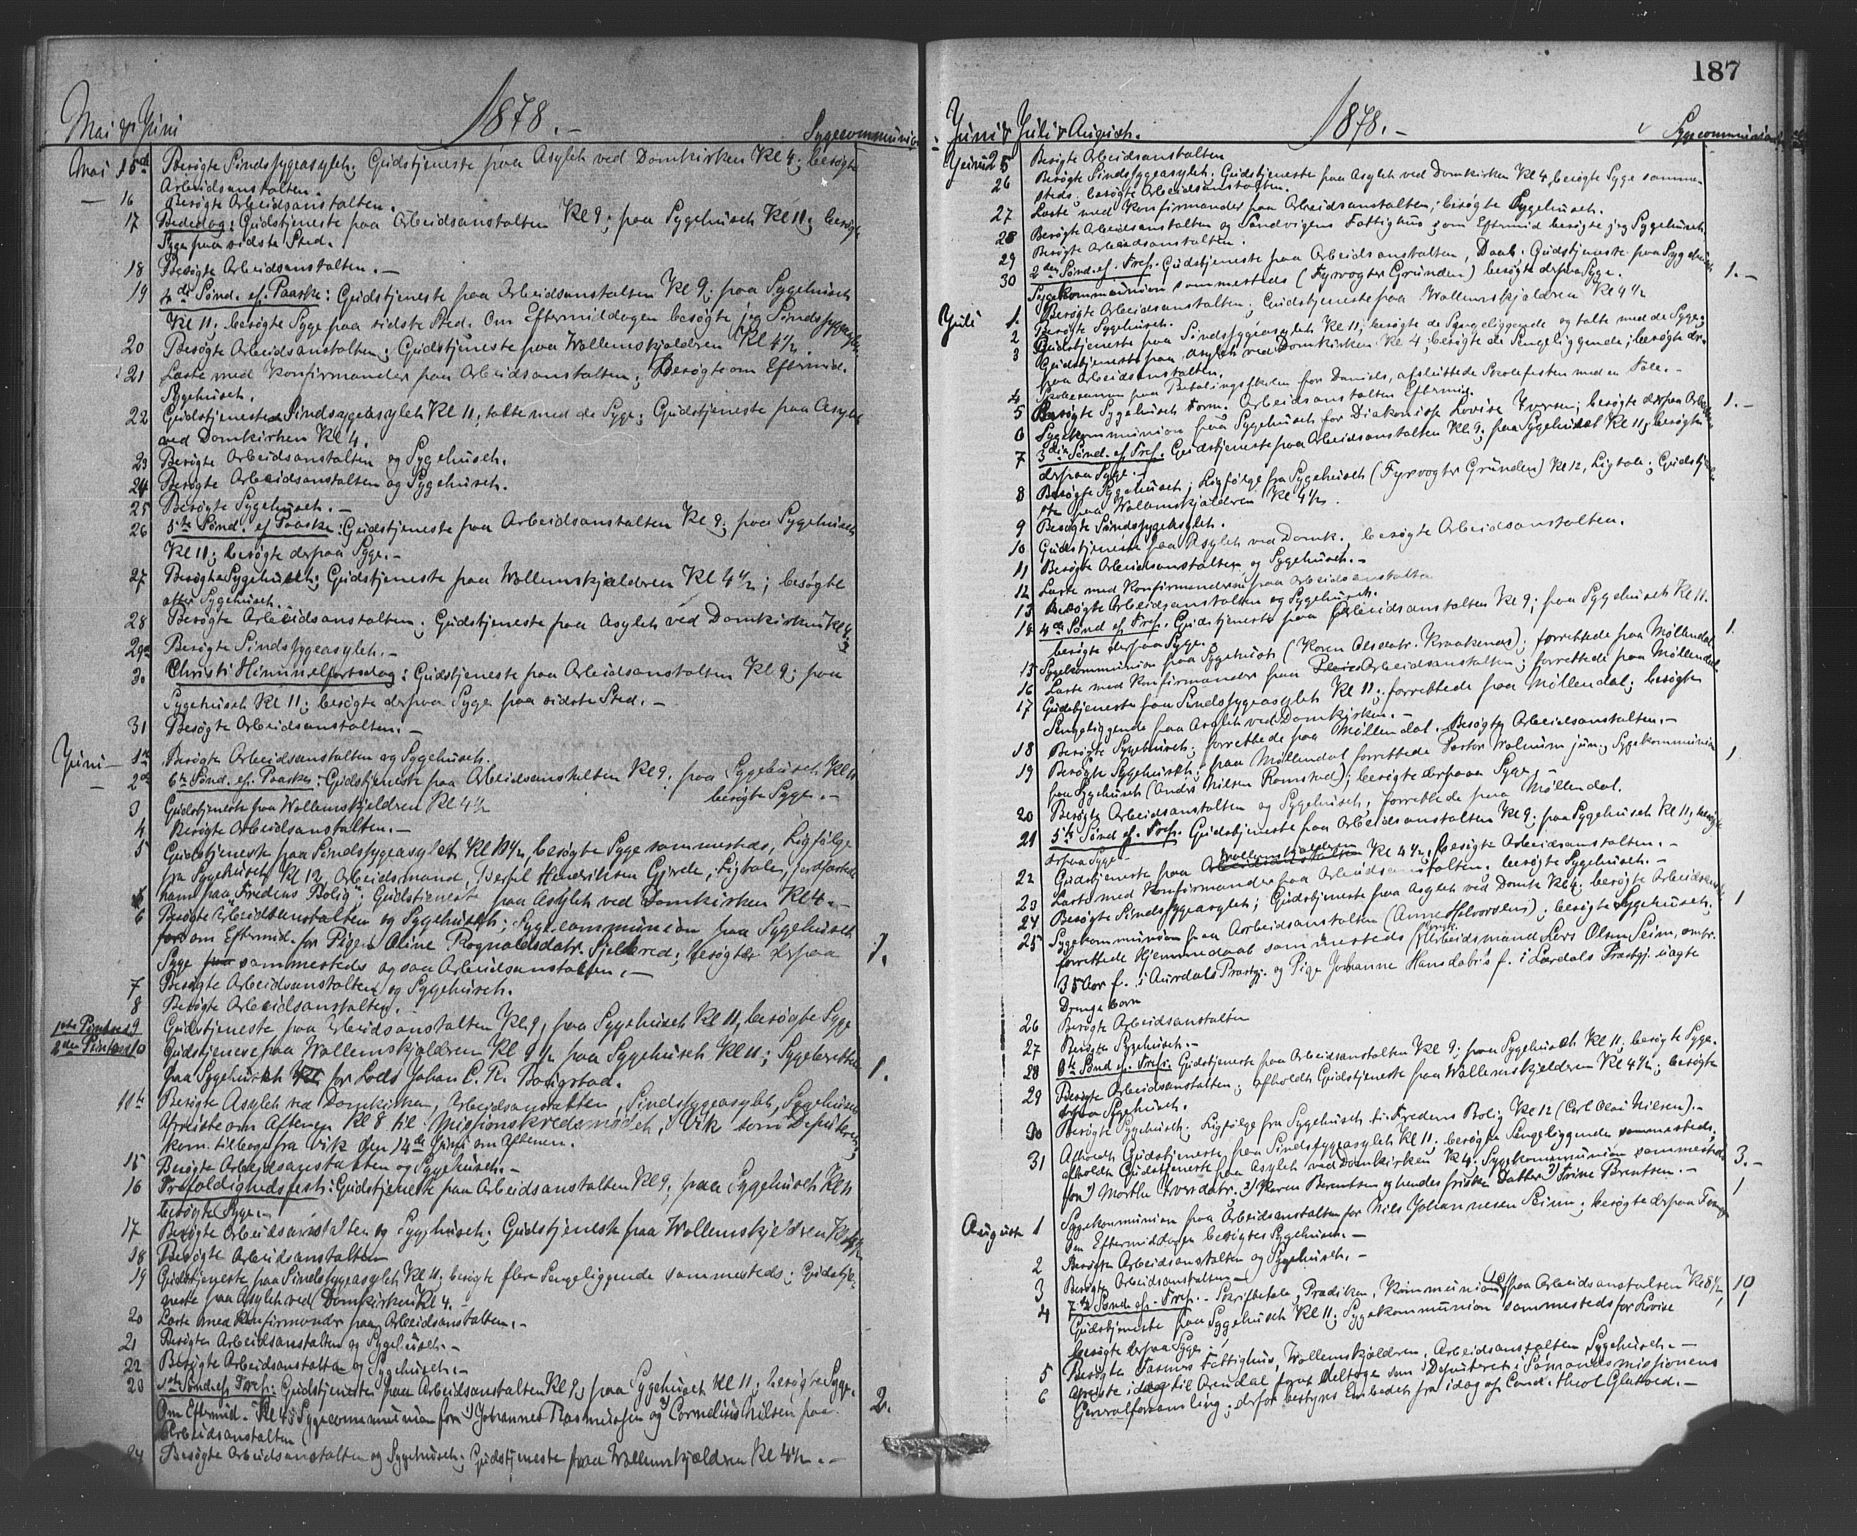 Mai & Juni
1878.-
Sygecommunion
Mai 15de Besøgte Sindssygeasylet; Gudstjeneste paa Asylet ved Domkirken Kl 4; besøgte
Arbeidsanstalten.
— 16 Besøgte Arbeidsanstalten.
17 Bededag: Gudstjeneste paa Arbeidsanstalten Kl 9; paa Sygehuset Kl 11; besøgte
Syge paa sidste Sted.
18 Besøgte Arbeidsanstalten.—
19 4de Sønd. ef. Paaske: Gudstjeneste paa Arbeidsanstalten Kl 9; paa Sygehuset
Kl 11; besøgte Syge paa sidste Sted. Om Eftermiddagen besøgte jeg Sindssygeasylet
20 Besøgte Arbeidsanstalten; Gudstjeneste paa Wollemskjældren Kl 4½
21 Læste med Konfirmander paa Arbeidsanstalten; Besøgte om Eftermid.
Sygehuset.
22 Gudstjeneste Sindssygeasylet Kl 11; talte med de Syge; Gudstjeneste paa Asylet
ved Domkirken Kl 4.
23 Besøgte Arbeidsanstalten og Sygehuset.
24 Besøgte Arbeidsanstalten og Sygehuset.
25 Besøgte Sygehuset.—
26 5te Sønd. ef Paaske: Gudstjeneste paa Arbeidsanstalten Kl 9; paa Sygehuset
Kl 11; besøgte derpaa Syge.—
27 Besøgte Sygehuset; Gudstjeneste paa Wollemskjældren Kl 4½; besøgte
atter Sygehuset.
28 Besøgte Arbeidsanstalten; Gudstjeneste paa Asylet ved Domkirken Kl 4
29 Besøgte Sindssygeasylet.—
30 Christi Himmelfartsdag: Gudstjeneste paa Arbeidsanstalten Kl 9; paa
Sygehuset Kl 11; besøgte derpaa Syge paa sidste Sted.—
31 Besøgte Arbeidsanstalten.—
Juni— 1ste Besøgte Arbeidsanstalten og Sygehuset.
— 2de 6te Sønd. ef. Paaske: Gudstjeneste paa Arbeidsanstalten Kl 9; paa Sygehuset Kl 11
besøgte Syge.—
3 Gudstjeneste paa Wollemskjeldren Kl 4½
4 Besøgte Arbeidsanstalten.—
5 Gudstjeneste paa Sindssygeasylet Kl 10½, besøgte Syge sammesteds, Ligfølge
fra Sygehuset Kl 12, Arbeidsmand Bertil Henriksen Gjerde, Ligtale, jordfæstede
ham paa "Fredens Bolig". Gudstjeneste paa Asylet ved Domkirken Kl 4.—
6 Besøgte Arbeidsanstalten og Sygehuset; Sygecommunion paa Sygehuset
om Eftermid. for Pigen Oline Rognaldsdatr. ; besøgte derpaa 1.
Syge sammesteds og saa Arbeidsanstalten.—
7 Besøgte Arbeidsanstalten og Sygehuset.
8 Besøgte Arbeidsanstalten.
1ste Pintsed 9 Gudstjeneste paa Arbeidsanstalten Kl 9, paa Sygehuset Kl 11, besøgte Syge
2den Pintsed 10 Gudstjeneste paa Wollemskjældren Kl 9½ paa Sygehuset Kl 11; Sygeberettelse
paa Sygehuset for Lods Johan C. R. . 1.
11te Besøgte Asylet ved Domkirken, Arbeidsanstalten, Sindssygeasylet, Sygehuset
Afreiste om Aftenen Kl 8 til Missionskredsmødet i Vik som Deputeret
kom tilbage fra Vik den 14de Juni om Aftenen.
15 Besøgte Arbeidsanstalten og Sygehuset.—
16 Trefoldighedsfest: Gudstjeneste paa Arbeidsanstalten Kl 9; paa Sygehuset Kl 11
besøgte Syge.—
17 Besøgte Arbeidsanstalten og Sygehuset; Gudstjeneste paa Wollemskjeldren Kl 4½
18 Besøgte Arbeidsanstalten
19 Gudstjeneste paa Sindssygeasylet Kl 11; besøgte flere Sengeliggende sammesteds; Gudstje-
neste paa Asylet ved Domkirken Kl 4.
20 Læste med Konfirmander paa Arbeidsanstalten.—
21 Besøgte Arbeidsanstalten og Sygehuset.—
22 Besøgte Arbeidsanstalten og Sygehuset.—
23 1ste Sønd. ef Tref: Gudstjeneste paa Arbeidsanstalten Kl 9; paa Sygehuset Kl 11; besøgte Syge.
Om Eftermid. Kl 4 Sygecommunion for Johannes Rasmussen og Cornelius Nilsen paa 2.
Arbeidsanstalten
24 Besøgte Arbeidsanstalten og Sygehuset; Gudstjeneste paa Wollemskjældren Kl 4½.—
187
Juni & Juli & August.
1878.—
Sygecommunion
Juni 25 Besøgte Arbeidsanstalten
26 Besøgte Sindssygeasylet. Gudstjeneste paa Asylet ved Domkirken Kl 4, besøgte Syge samme-
steds; besøgte Arbeidsanstalten.
27 Læste med Konfirmander paa Arbeidsanstalten; besøgte Sygehuset.
28 Besøgte Arbeidsanstalten og Sandvigens Fattighus, om Eftermid besøgte jeg Sygehuset
29 Besøgte Arbeidsanstalten.
30 2den Sønd. ef. Tref. Gudstjeneste paa Arbeidsanstalten, Daab. Gudstjeneste paa Sygehuset
Sygekommunion sammesteds (Fyrvogter Grunden) besøgte derpaa Syge. 1.—
Juli 1. Besøgte Arbeidsanstalten; Gudstjeneste paa Wollemskjældren Kl 4½
2 Besøgte Sygehuset.
3 Gudstjeneste paa Sindssygeasylet Kl 11; besøgte de Sengeliggende og talte med de Syge;
Gudstjeneste paa Asylet ved Domkirken Kl 4; besøgte de Sengeliggende; besøgte der-
paa Arbeidsanstalten.
4 Skoleexamen paa Betalingsskolen for Daniels, afsluttede Skolefesten med en Tale.—
5 Besøgte Sygehuset Form. Arbeidsanstalten Eftermid.
6 Sygekommunion paa Sygehuset for Diakonisse Lovise Iversen; besøgte derpaa Arbeidsanst. 1.—
7 3die Sønd. ef Tref. Gudstjeneste paa Arbeidsanstalten Kl 9; paa Sygehuset Kl 11; besøgte
derpaa Syge.—
8 Besøgte Sygehuset; Ligfølge fra Sygehuset (Fyrvogter Grunden) Kl 12, Ligtale; Gudstjene-
ste paa Wollemskjældren Kl 4½.
9 Besøgte Sindssygeasylet.
10 Gudstjeneste paa Asylet ved Domk., besøgte Arbeidsanstalten.
11 Besøgte Arbeidsanstalten og Sygehuset.—
12 Læste med Konfirmanderne paa Arbeidsanstalten
13 Besøgte Arbeidsanstalten og Sygehuset.
14 4de Sønd ef Tref. Gudstjeneste paa Arbeidsanstalten Kl 9; paa Sygehuset Kl 11.
besøgte derpaa Syge.
15 Sygekommunion paa Sygehuset (Karen Olsdatr. Kraakenæs); forrettede paa Møllendal. 1.
16 Læste med Konfirmander paa Arbeidsanstalten; forrettede paa Møllendal
17 Gudstjeneste paa Sindssygeasylet Kl 11; forrettede paa Møllendal; besøgte
Sengeliggende paa Asylet ved Domkirken.—
18 Besøgte Sygehuset; forrettede paa Møllendal. Besøgte Arbeidsanstalten.—
19 Besøgte Sygehuset; paa Møllendal forrettede Pastor Walnum jun; Sygekommunion 1
paa Sygehuset (Andr. Nilsen Ramstad); besøgte derpaa Syge.—
20 Besøgte Arbeidsanstalten og Sygehuset, forrettede paa Møllendal.
21 5te Sønd ef. Tref. Gudstjeneste paa Arbeidsanstalten Kl 9; paa Sygehuset Kl 11, besøgte
derpaa Syge—
22 Gudstjeneste paa Wollemskjældren Kl 4½, besøgte Arbeidsanstalten.—
23 Læste med Konfirmander paa Arbeidsanstalten. besøgte Sygehuset.—
24 Besøgte Sindssygeasylet; Gudstjeneste paa Asylet ved Domk Kl 4; besøgte Arbeidsanst.
25 Sygekommunion paa Arbeidsanstalten (Anne Halvorsens); besøgte Sygehuset; 1
forrettede Hjemmedaab sammesteds (Arbeidsmand Lars Olsen Seim, omtr.
35 Aar f. i Aurdals Præstgj. og Pige Johanne Hansdatr's f. i Lærdals Præstgj. uægte
Drengebarn
26 Besøgte Arbeidsanstalten
27 Besøgte Sygehuset.—
28 6te Sønd ef. Tref. Gudstjeneste paa Arbeidsanstalten Kl 9; paa Sygehuset Kl 11; besøgte Syge.
29 Besøgte Arbeidsanstalten; afholdt Gudstjeneste paa Wollemskjeldren Kl 4½; besøgte
derpaa Sygehuset.
30 Besøgte Sygehuset; Ligfølge fra Sygehuset til Fredens Bolig Kl 12 (Carl Olai Nilsen).—
31 Afholdt Gudstjeneste paa Sindssygeasylet Kl 11. besøgte Sengeliggende sammesteds;
afholdt Gudstjeneste paa Asylet ved Domkirken Kl 4; Sygekommunion sammesteds 3.—
for 1) Marthe Iversdatr. 2) Karen Berentsen og hendes friske Datter 3) Trine Berentsen.—
August 1 Sygekommunion paa Arbeidsanstalten for Nils Johannesen Seim; besøgte derpaa 1
Om Eftermiddagen besøgtes Sygehuset.—
2 Besøgte Arbeidsanstalten og Sygehuset.—
3 Besøgte Arbeidsanstalten—
4 7de Sønd. ef. Tref.— Skriftetale, Prædiken, Kommunion paa Arbeidsanstalten Kl 8½, 10
Gudstjeneste paa Sygehuset Kl 11; Sygekommunion sammesteds for Lovise 1
besøgte derpaa Syge
5 Besøgte Fattighus, Wollemskjældren, Arbeidsanstalten Sygehuset.—
6 reiste idag til Arendal for at deltage som Deputeret i Sømandsmissionens
Generalforsamling; derfor bestyres Embedet fra idag af Cand. theol Glatved.—